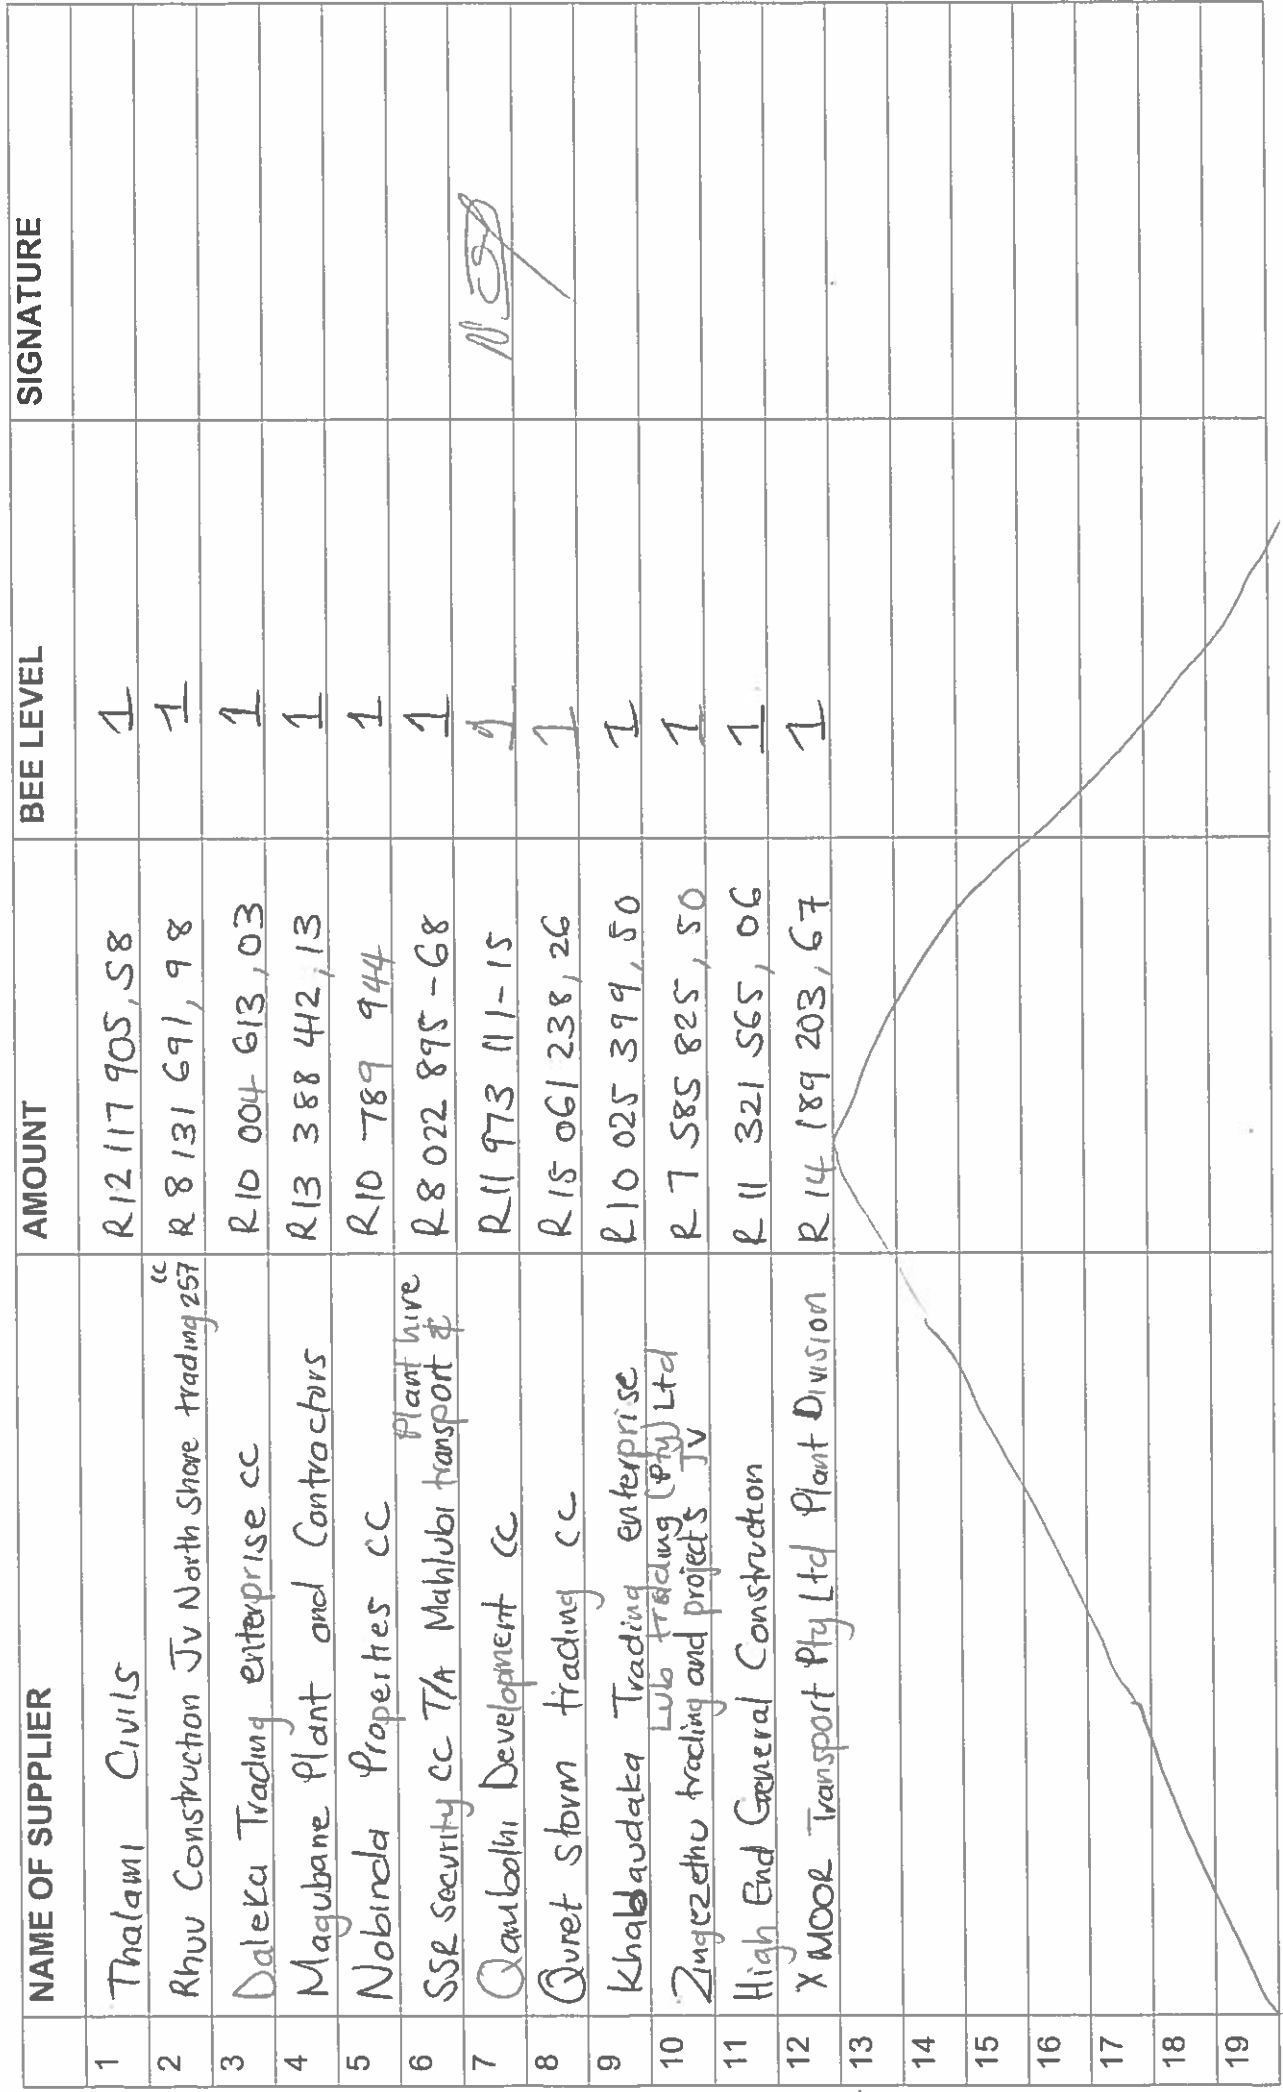 NAME OF SUPPLIER AMOUNT BEE LEVEL SIGNATURE
1 Thalami Civils R12 117 905,58 1
2 Rhuv Construction JV North Shore trading 257 CC R 8 131 691,98 1
3 Daleka Trading enterprise CC R10 004 613,03 1
4 Magubane Plant and Contractors R13 388 442,13 1
5 Nobinda Properties CC R10 789 944 1
Plant hire
6 SSR Security CC T/A Mahlubi transport & R8 022 895-68 1
7 Qambolhi Development CC R11 973 111-15 1
8 Quret storm trading CC R15 061 238,26 1
9 Khabaudaka Trading enterprise R10 025 399,50 1
Lub trading (Pty) Ltd
10 Zingezethu trading and projects JV R 7 585 825,50 1
11 High End General Construction R 11 321 565,06 1
12 X MOOR Transport Pty Ltd Plant Division R 14 189 203,67 1
13
14
15
16
17
18
19